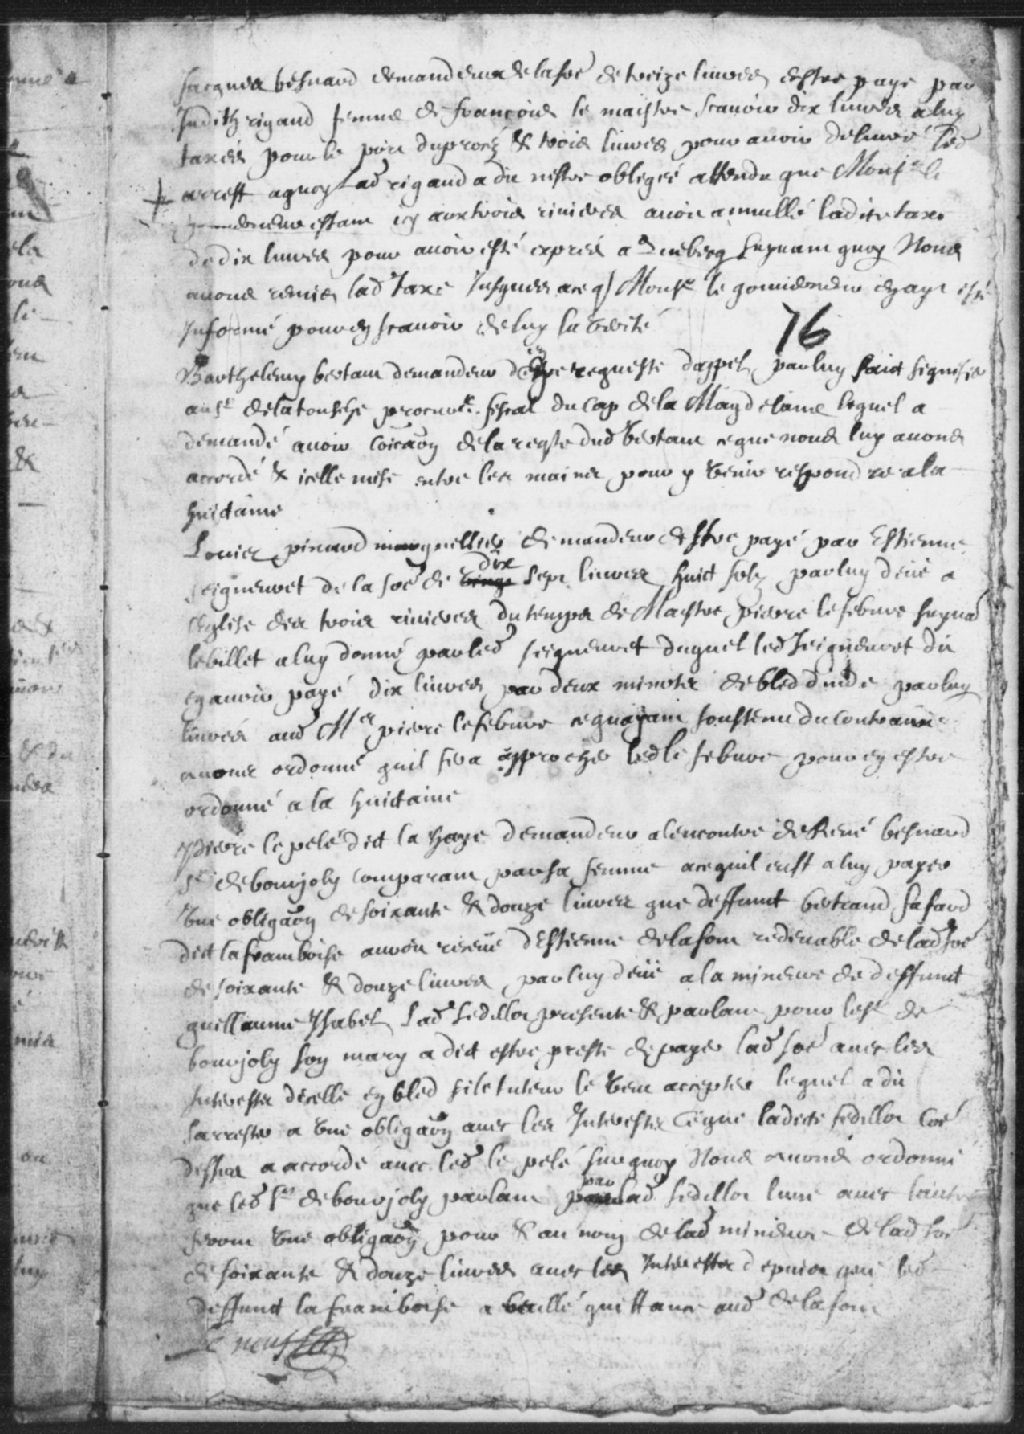 Jacques besnard demandeur de la soe de treize livres destre payé par
Judith rigaud femme de francois le maistre scavoir dix livres a luy
taxés pour le port du procz & trois livres pour avoir delivré led
arrest a quoy lad rigaud a dit nestre obligée attendu que Monsr le
gouverneur estant icy aux trois rivieres avoit annullé ladite taxe
de dix livres pour avoir esté exprés a quebecq surquoy Nous
avons remis lad taxe Jusques a ce q Monsr le gouverneur en aye esté
Informé pour en scavoir de luy la verité
76
Barthelemy bertaut demandeur en requeste dappel par luy faict signifier
au sr de la tousche procur fiscal du Cap de la Magdelaine lequel a
demandé avoir coicaon de la reqste dud bertaut ce que nous luy avons
accordé & icelle mise entre les mains pour y venir respondre a la
huictaine
Louis pinard marguellier demandeur destre payé par Estienne
seigneuret de la soe de dix sept livres huict solz par luy deüe a
leglise des trois rivieres du temps de Maistre pierre lefebvre suyvant
le billet a luy donné par led seigneuret duquel led seigneuret dit
en avoir payé dix livres par deux minots de bled dinde par luy
livrés aud Mr pierre lefebvre ce quayant soustenu du contraire
avons ordonné quil fera approcher led lefebvre pour en estre
ordonné a la huictaine
pierre le pelé dict la haye demandeur alencontre de René besnard
sr de bourjoly comparant par sa femme a ce quil eust a luy payer
Une obligaon de soixante & douze livres que deffunt bertrand fafard
dict laframboise avoit receüe dEstienne de lafont redevable de lad soe
de soixante & douze livres par luy deüe a la mineure de deffunct
guillaume Isabel Lad sedillot presente & parlant pour led sr de
bourjoly son mary a dict estre preste de payer lad soe avec les
Interests dicelle en bled si le tuteur le veut accepter lequel a dit
sarrester a une obligaon avec les Interests Ce que ladicte sedillot coe
dessus a accordé avec led le pelé surquoy Nous avons ordonné
que led sr de bourjoly parlant par lad sedillot lune avec lautre
feront une obligaon pour & au nom de lad mineure de lad soe
de soixante & douze livres avec les Interests depuis que led
deffunct laframboise a baillé quittance aud de lafont
Le neuf